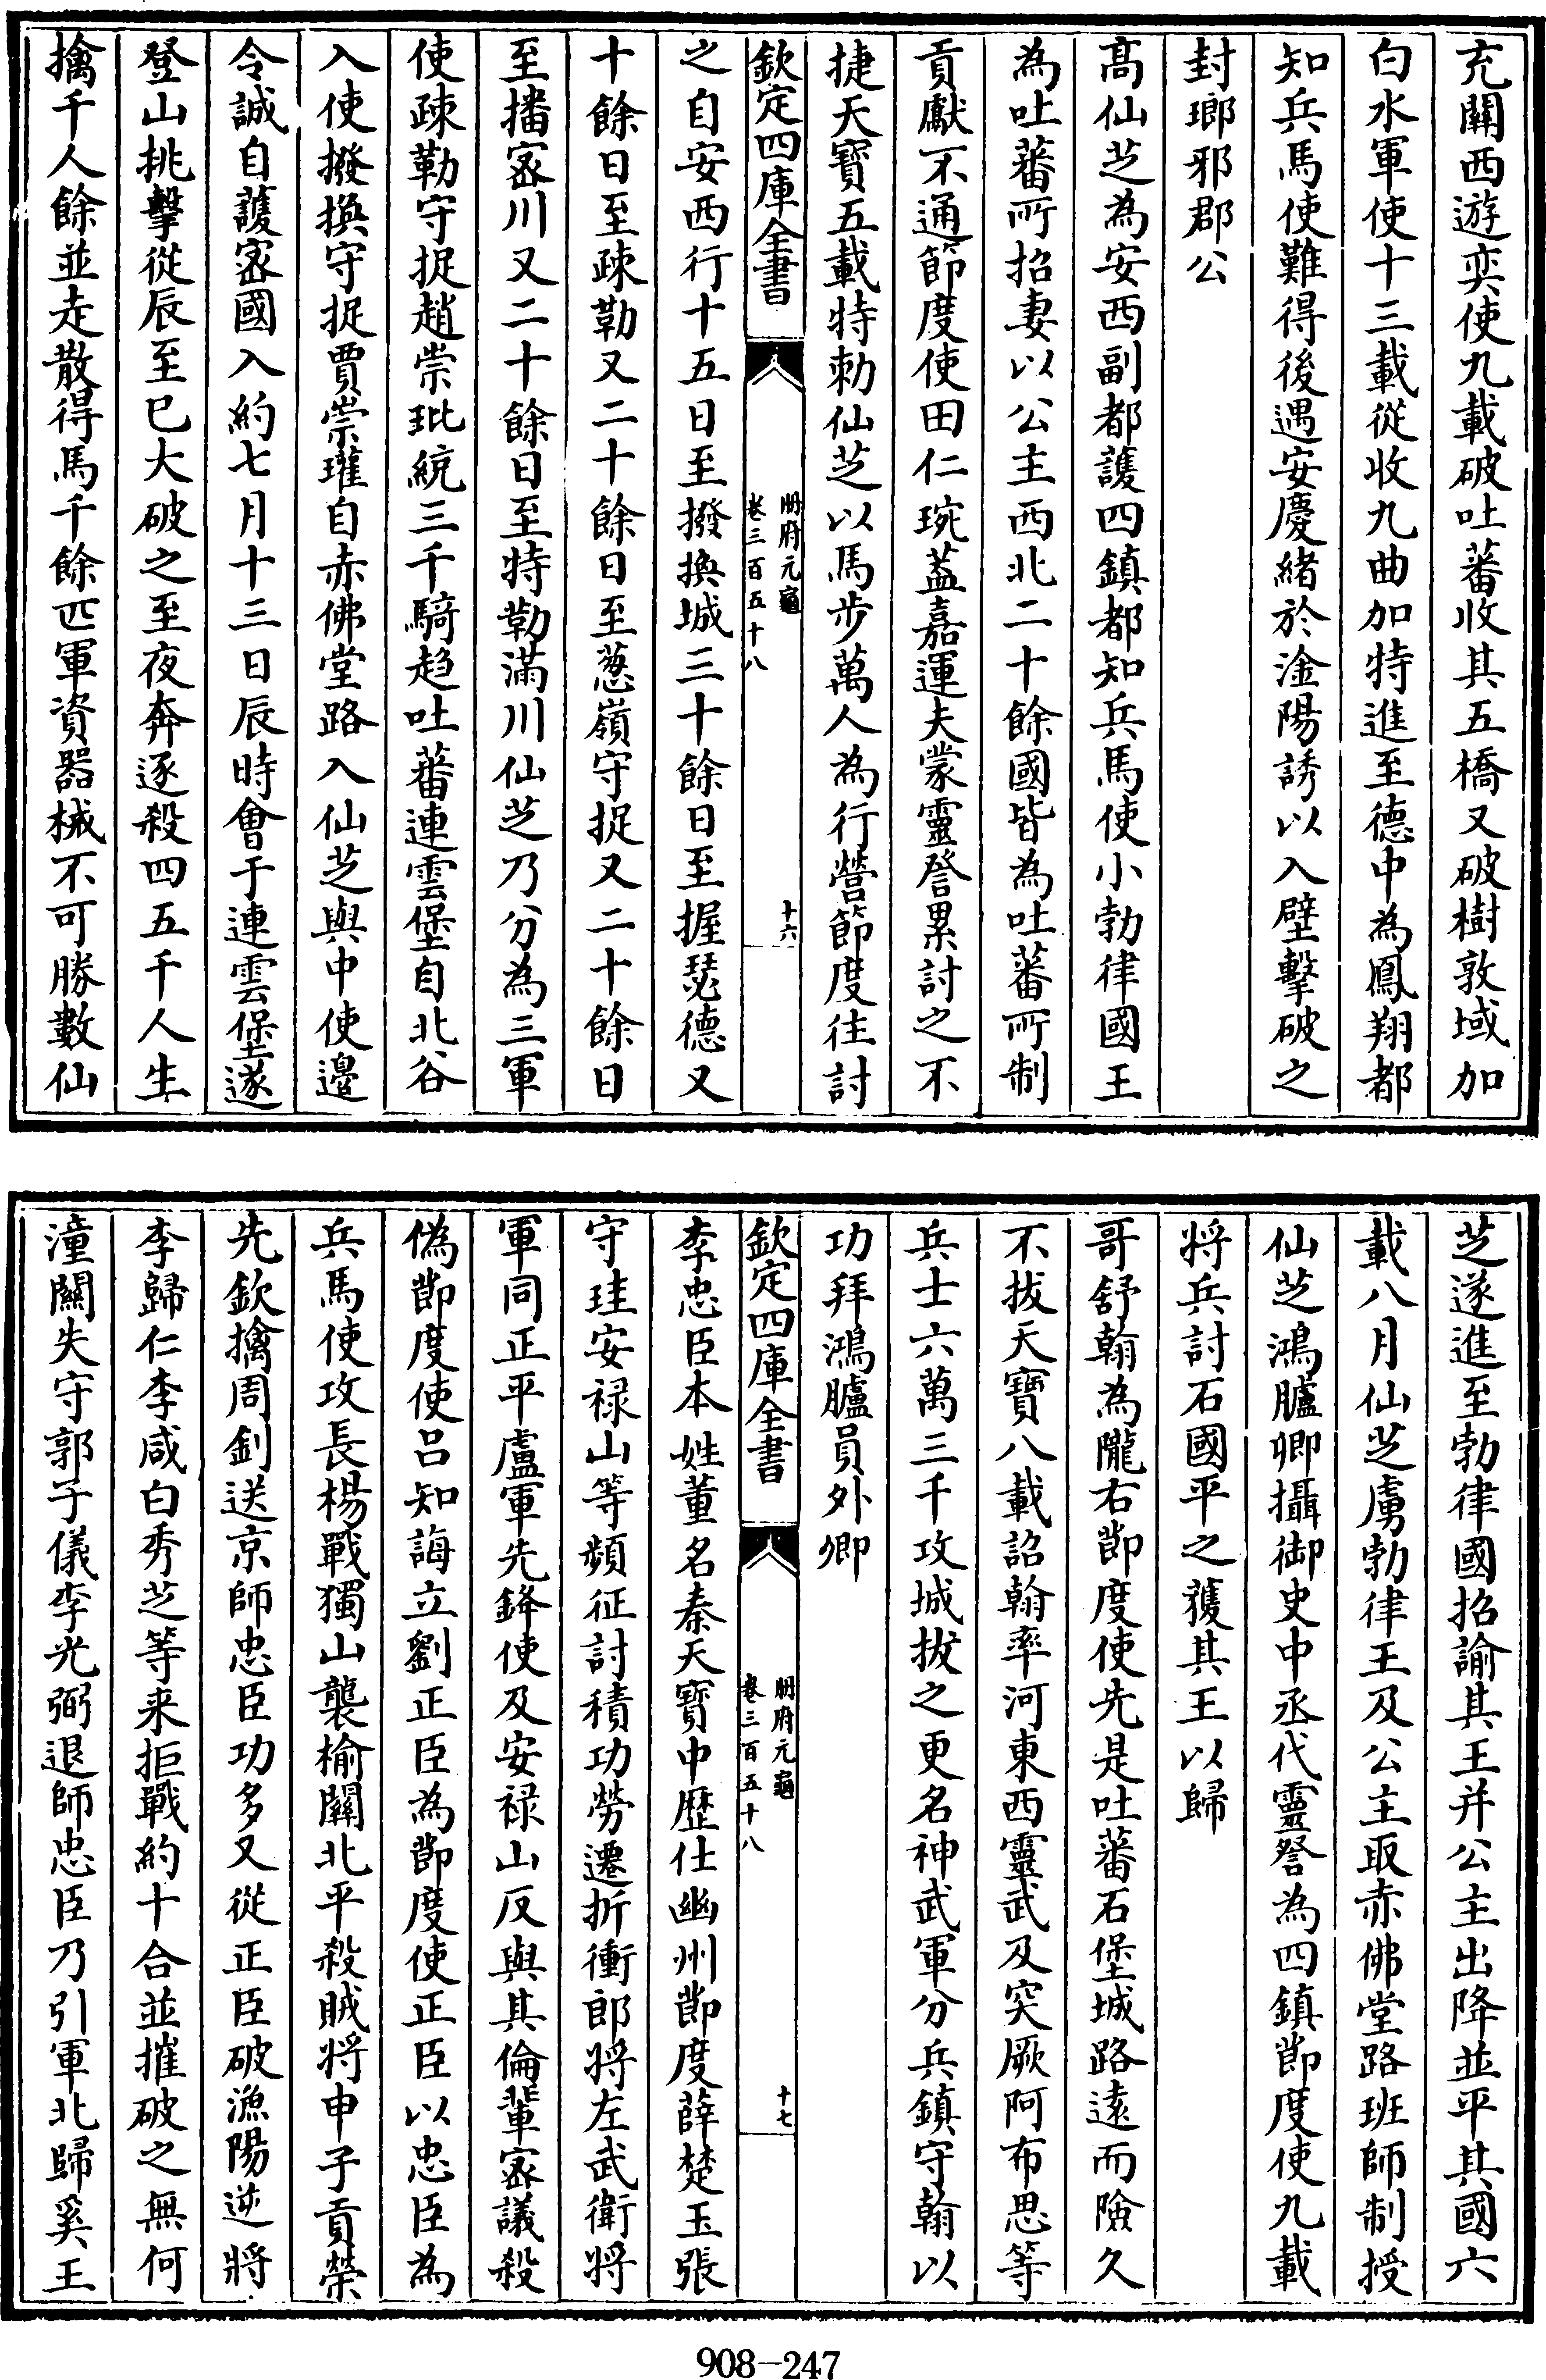 充關西遊奕使九載破吐蕃收其五橋又破樹敦域加
白水軍使十三載從收九曲加特進至德中為鳳翔都
知兵馬使難得後遇安慶緒於淦陽誘以入壁擊破之
封瑯邪郡公
髙仙芝為安西副都護四鎮都知兵馬使小勃律國王
為吐蕃所招妻以公主西北二十餘國皆為吐蕃所制
貢獻不通節度使田仁琬蓋嘉運夫蒙靈詧累討之不
捷天寶五載特勅仙芝以馬步萬人為行營節度往討
欽定四庫全書
冊府元龜
卷三百五十八
十六
之自安西行十五日至撥換城三十餘日至握瑟德又
十餘日至疎勒又二十餘日至葱嶺守捉又二十餘日
至播宻川又二十餘日至特勒滿川仙芝乃分為三軍
使疎勒守捉趙崇玭統三千騎趋吐蕃連雲堡自北谷
入使撥換守捉賈崇瓘自赤佛堂路入仙芝與中使邊
令誠自護宻國入約七月十三日辰時㑹于連雲堡遂
登山挑擊從辰至巳大破之至夜奔逐殺四五千人生
擒千人餘並走散得馬千餘匹軍資器械不可勝數仙
芝遂進至勃律國招諭其王并公主出降並平其國六
載八月仙芝虜勃律王及公主取赤佛堂路班師制授
仙芝鴻臚卿攝御史中丞代靈詧為四鎮節度使九載
将兵討石國平之獲其王以歸
哥舒翰為隴右節度使先是吐蕃石堡城路逺而險久
不拔天寶八載詔翰率河東西靈武及突厥阿布思等
兵士六萬三千攻城拔之更名神武軍分兵鎮守翰以
功拜鴻臚員外卿
欽定四庫全書
冊府元龜
卷三百五十八
十七
李忠臣本姓董名秦天寶中歴仕幽州節度薛楚玉張
守珪安禄山等頻征討積功勞遷折衝郎将左武衛将
軍同正平盧軍先鋒使及安禄山反與其倫輩宻議殺
偽節度使吕知誨立劉正臣為節度使正臣以忠臣為
兵馬使攻長楊戰獨山襲榆關北平殺賊将申子貢榮
先欽擒周釗送京師忠臣功多又從正臣破漁陽逆將
李歸仁李咸白秀芝等来拒戰約十合並摧破之無何
潼關失守郭子儀李光弼退師忠臣乃引軍北歸奚王
908-247